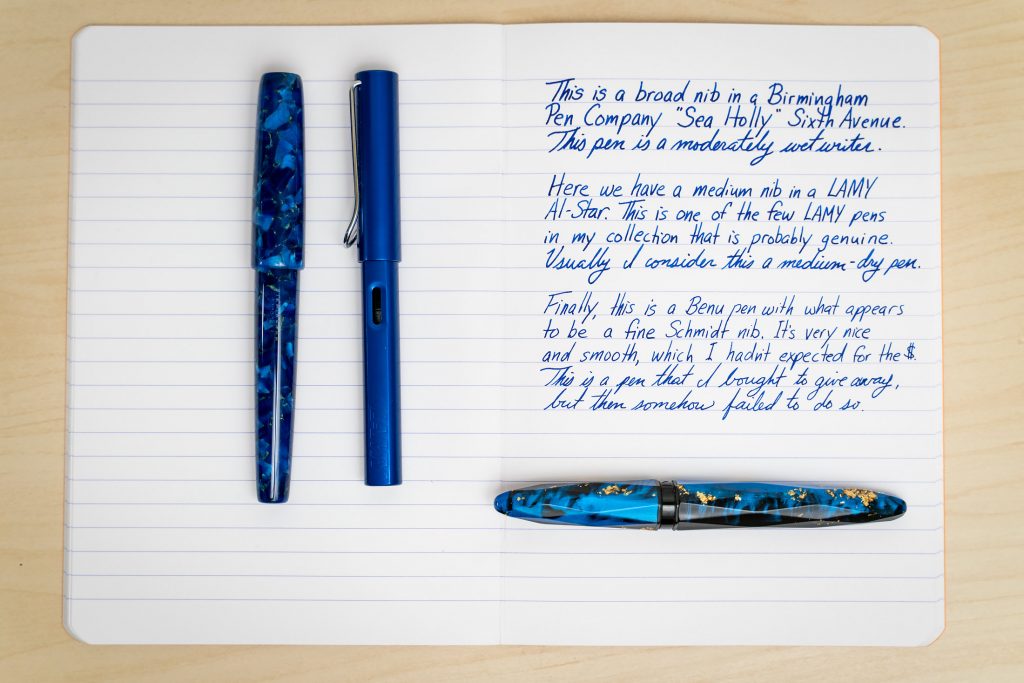 This is a broad nib in a Birmingham
Pen Company "Sea Holly" Sixth Avenue.
This pen is a moderately wet writer.
Here we have a medium nib in a LAMY
Al-Star. This is one of the few LAMY pens
in my collection that is probably genuine.
Usually I consider this a medium-dry pen.
Finally, this is a Benu pen with what appears
to be a fine Schmidt nib. It's very nice
and smooth, which I hadn't expected for the $.
This is a pen that I bought to give away,
but then somehow failed to do so.